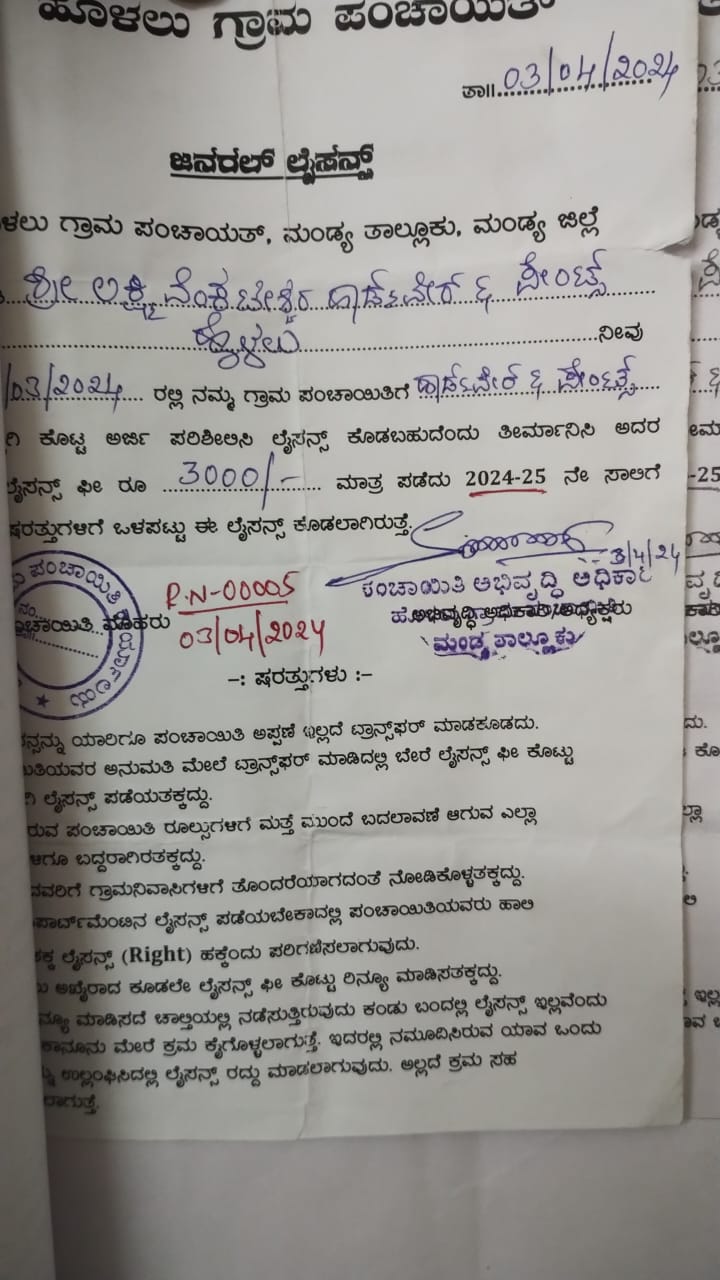 ಹೊಳಲು ಗ್ರಾಮ ಪಂಚಾಯಿತಿ
ತಾ॥ 03/04/2024
ಜನರಲ್ ಲೈಸೆನ್ಸ್
ಗ್ರಾಮ ಪಂಚಾಯತ್, ಮಂಡ್ಯ ತಾಲ್ಲೂಕು, ಮಂಡ್ಯ ಜಿಲ್ಲೆ
ಶ್ರೀ ಲಕ್ಷ್ಮಿ ವೆಂಕಟೇಶ್ವರ ಹಾರ್ಡ್‌ವೇರ್ & ಪೇಂಟ್ಸ್
ಹೊಳಲು ನೀವು
/03/2024 ರಲ್ಲಿ ನಮ್ಮ ಗ್ರಾಮ ಪಂಚಾಯಿತಿಗೆ ಹಾರ್ಡ್‌ವೇರ್ & ಪೇಂಟ್ಸ್
ಕೊಟ್ಟ ಅರ್ಜಿ ಪರಿಶೀಲಿಸಿ ಲೈಸೆನ್ಸ್ ಕೊಡಬಹುದೆಂದು ತೀರ್ಮಾನಿಸಿ ಅದರ
ಲೈಸೆನ್ಸ್ ಫೀ ರೂ 3000/- ಮಾತ್ರ ಪಡೆದು 2024-25 ನೇ ಸಾಲಿಗೆ
ಷರತ್ತುಗಳಿಗೆ ಒಳಪಟ್ಟು ಈ ಲೈಸೆನ್ಸ್ ಕೂಡಲಾಗಿರುತ್ತೆ.
3/4/24
ಪಂಚಾಯಿತಿ ಅಭಿವೃದ್ಧಿ ಅಧಿಕಾರಿ
R.N-00005
03/04/2024
ಮಂಡ್ಯ ತಾಲ್ಲೂಕು
-: ಷರತ್ತುಗಳು :-
ಯಾರಿಗೂ ಪಂಚಾಯಿತಿ ಅಪ್ಪಣೆ ಇಲ್ಲದೆ ಟ್ರಾನ್ಸ್‌ಫರ್ ಮಾಡಕೂಡದು.
ಅನುಮತಿ ಮೇಲೆ ಟ್ರಾನ್ಸ್‌ಫರ್ ಮಾಡಿದಲ್ಲಿ ಬೇರೆ ಲೈಸೆನ್ಸ್ ಫೀ ಕೊಟ್ಟು
ಲೈಸೆನ್ಸ್ ಪಡೆಯತಕ್ಕದ್ದು.
ಪಂಚಾಯಿತಿ ರೂಲ್ಸುಗಳಿಗೆ ಮತ್ತೆ ಮುಂದೆ ಬದಲಾವಣೆ ಆಗುವ ಎಲ್ಲಾ
ಬದ್ದರಾಗಿರತಕ್ಕದ್ದು.
ಗ್ರಾಮನಿವಾಸಿಗಳಿಗೆ ತೊಂದರೆಯಾಗದಂತೆ ನೋಡಿಕೊಳ್ಳತಕ್ಕದ್ದು.
ಲೈಸೆನ್ಸ್ ಪಡೆಯಬೇಕಾದಲ್ಲಿ ಪಂಚಾಯಿತಿಯವರು ಹಾಲಿ
ಲೈಸೆನ್ಸ್ (Right) ಹಕ್ಕೆಂದು ಪರಿಗಣಿಸಲಾಗುವುದು.
ಅಖೈರಾದ ಕೂಡಲೇ ಲೈಸೆನ್ಸ್ ಫೀ ಕೊಟ್ಟು ರಿನ್ಯೂ ಮಾಡಿಸತಕ್ಕದ್ದು.
ಮಾಡಿಸದೆ ಚಾಲ್ತಿಯಲ್ಲಿ ನಡೆಸುತ್ತಿರುವುದು ಕಂಡು ಬಂದಲ್ಲಿ ಲೈಸೆನ್ಸ್ ಇಲ್ಲವೆಂದು
ಕಾನೂನು ಮೇರೆ ಕ್ರಮ ಕೈಗೊಳ್ಳಲಾಗುತ್ತೆ. ಇದರಲ್ಲಿ ನಮೂದಿಸಿರುವ ಯಾವ ಒಂದು
ಉಲ್ಲಂಘಿಸಿದಲ್ಲಿ ಲೈಸೆನ್ಸ್ ರದ್ದು ಮಾಡಲಾಗುವುದು. ಅಲ್ಲದೆ ಕ್ರಮ ಸಹ